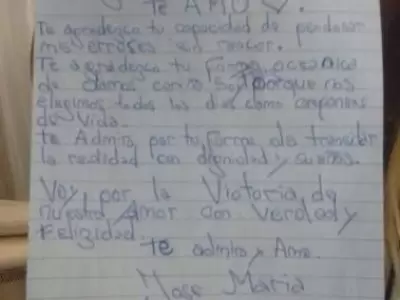 Te AMO
Te agradezco tu capacidad de perdonar
mis errores sin rencor.
Te agradezco tu Forma oceanica
de darnos porque nos
elegimos todos los dias como compañeros
de Vida.
te Admiro por tu forma de transitar
la realidad con dignidad y sueños.
Voy, por la Victoria de
nuestro Amor con Verdad y
Felizidad.
te admiro y Amo.
Jose Maria